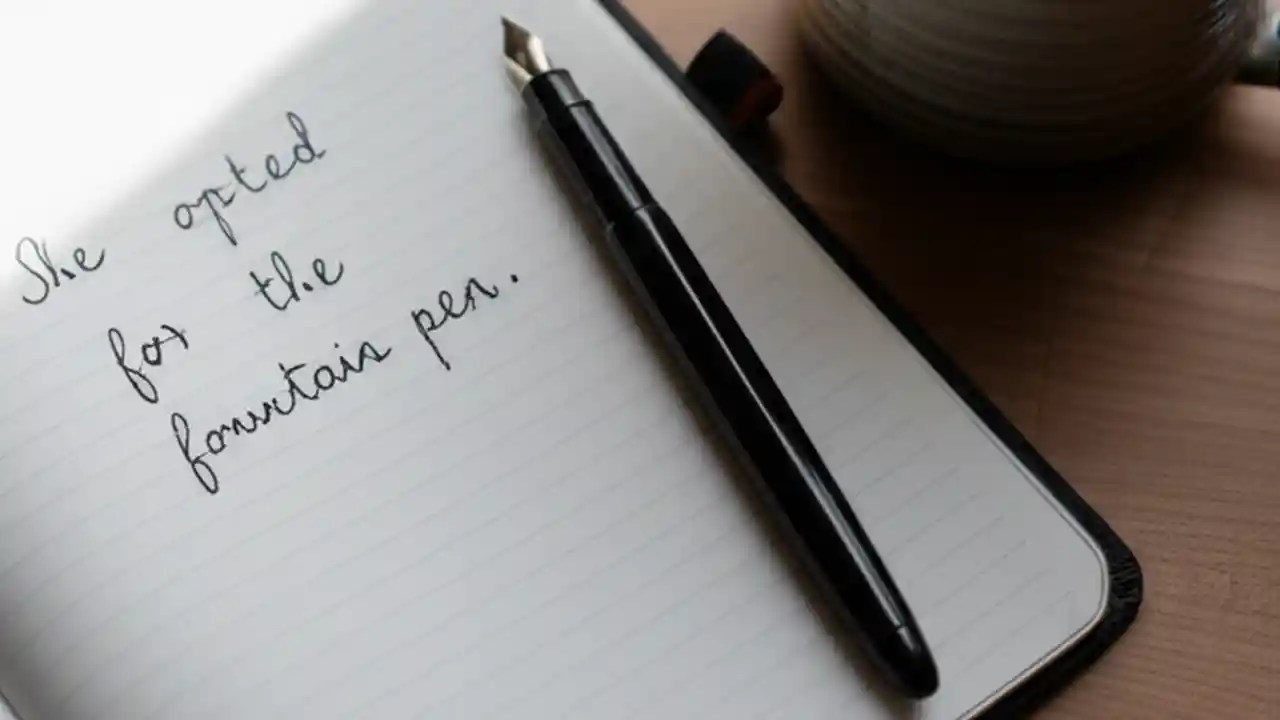 She opted
for the
fountain pen.